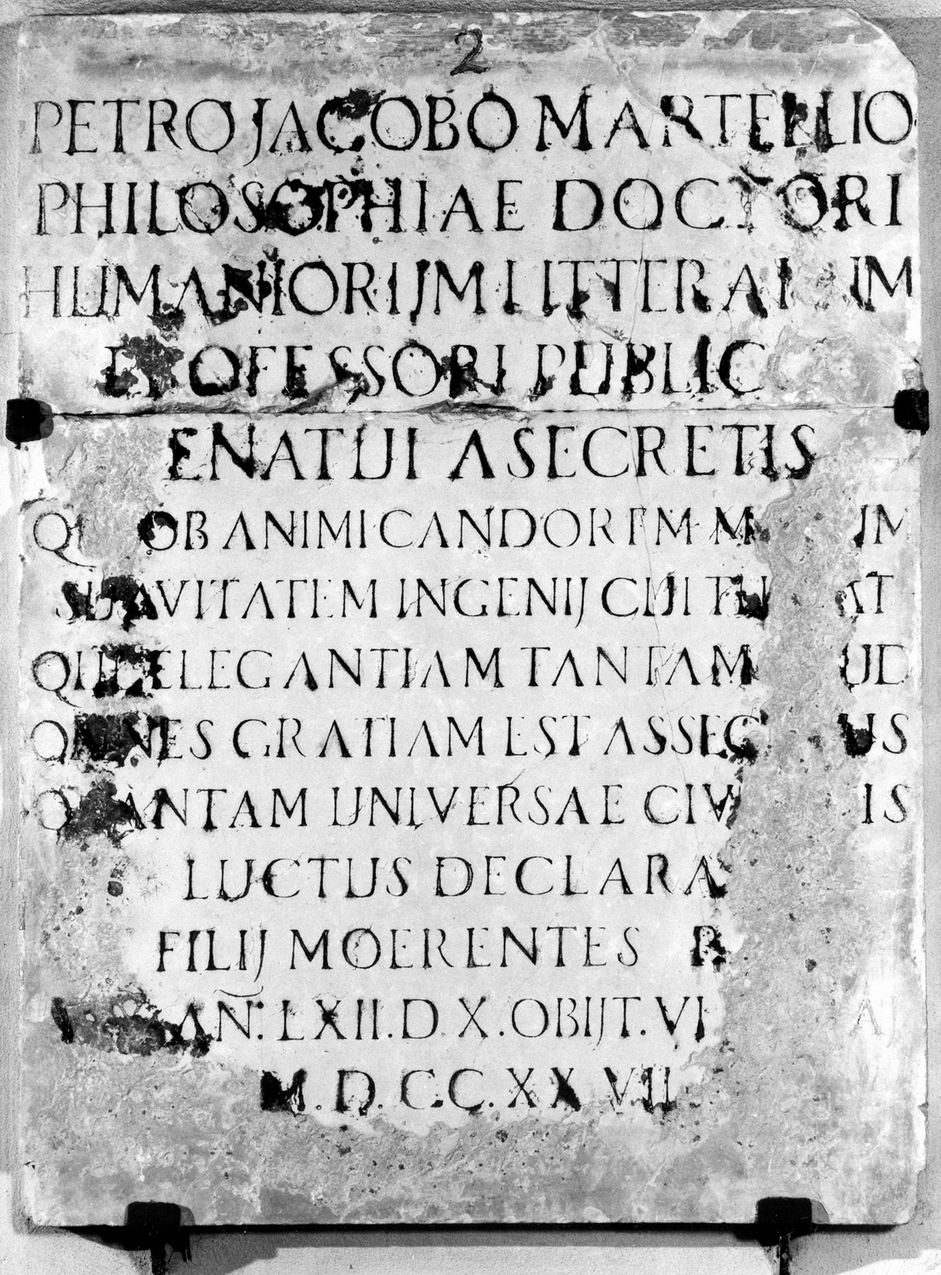 2
PETRO JACOBO MARTELLIO
PHILOSOPHIAE DOCTORI
HUMANIORUM LITTERARUM
PROFESSORI PUBLIC
ENATUI A SECRETIS
OB ANIMI CANDOREM
SUAVITATEM INGENIJ CUI
ELEGANTIAM TANTAM
OMNES GRATIAM EST
QUANTAM UNIVERSAE
LUCTUS
FILIJ MOERENTES
AÑ. LXII. D. X. OBIJT.
M.D.CC.XXVII